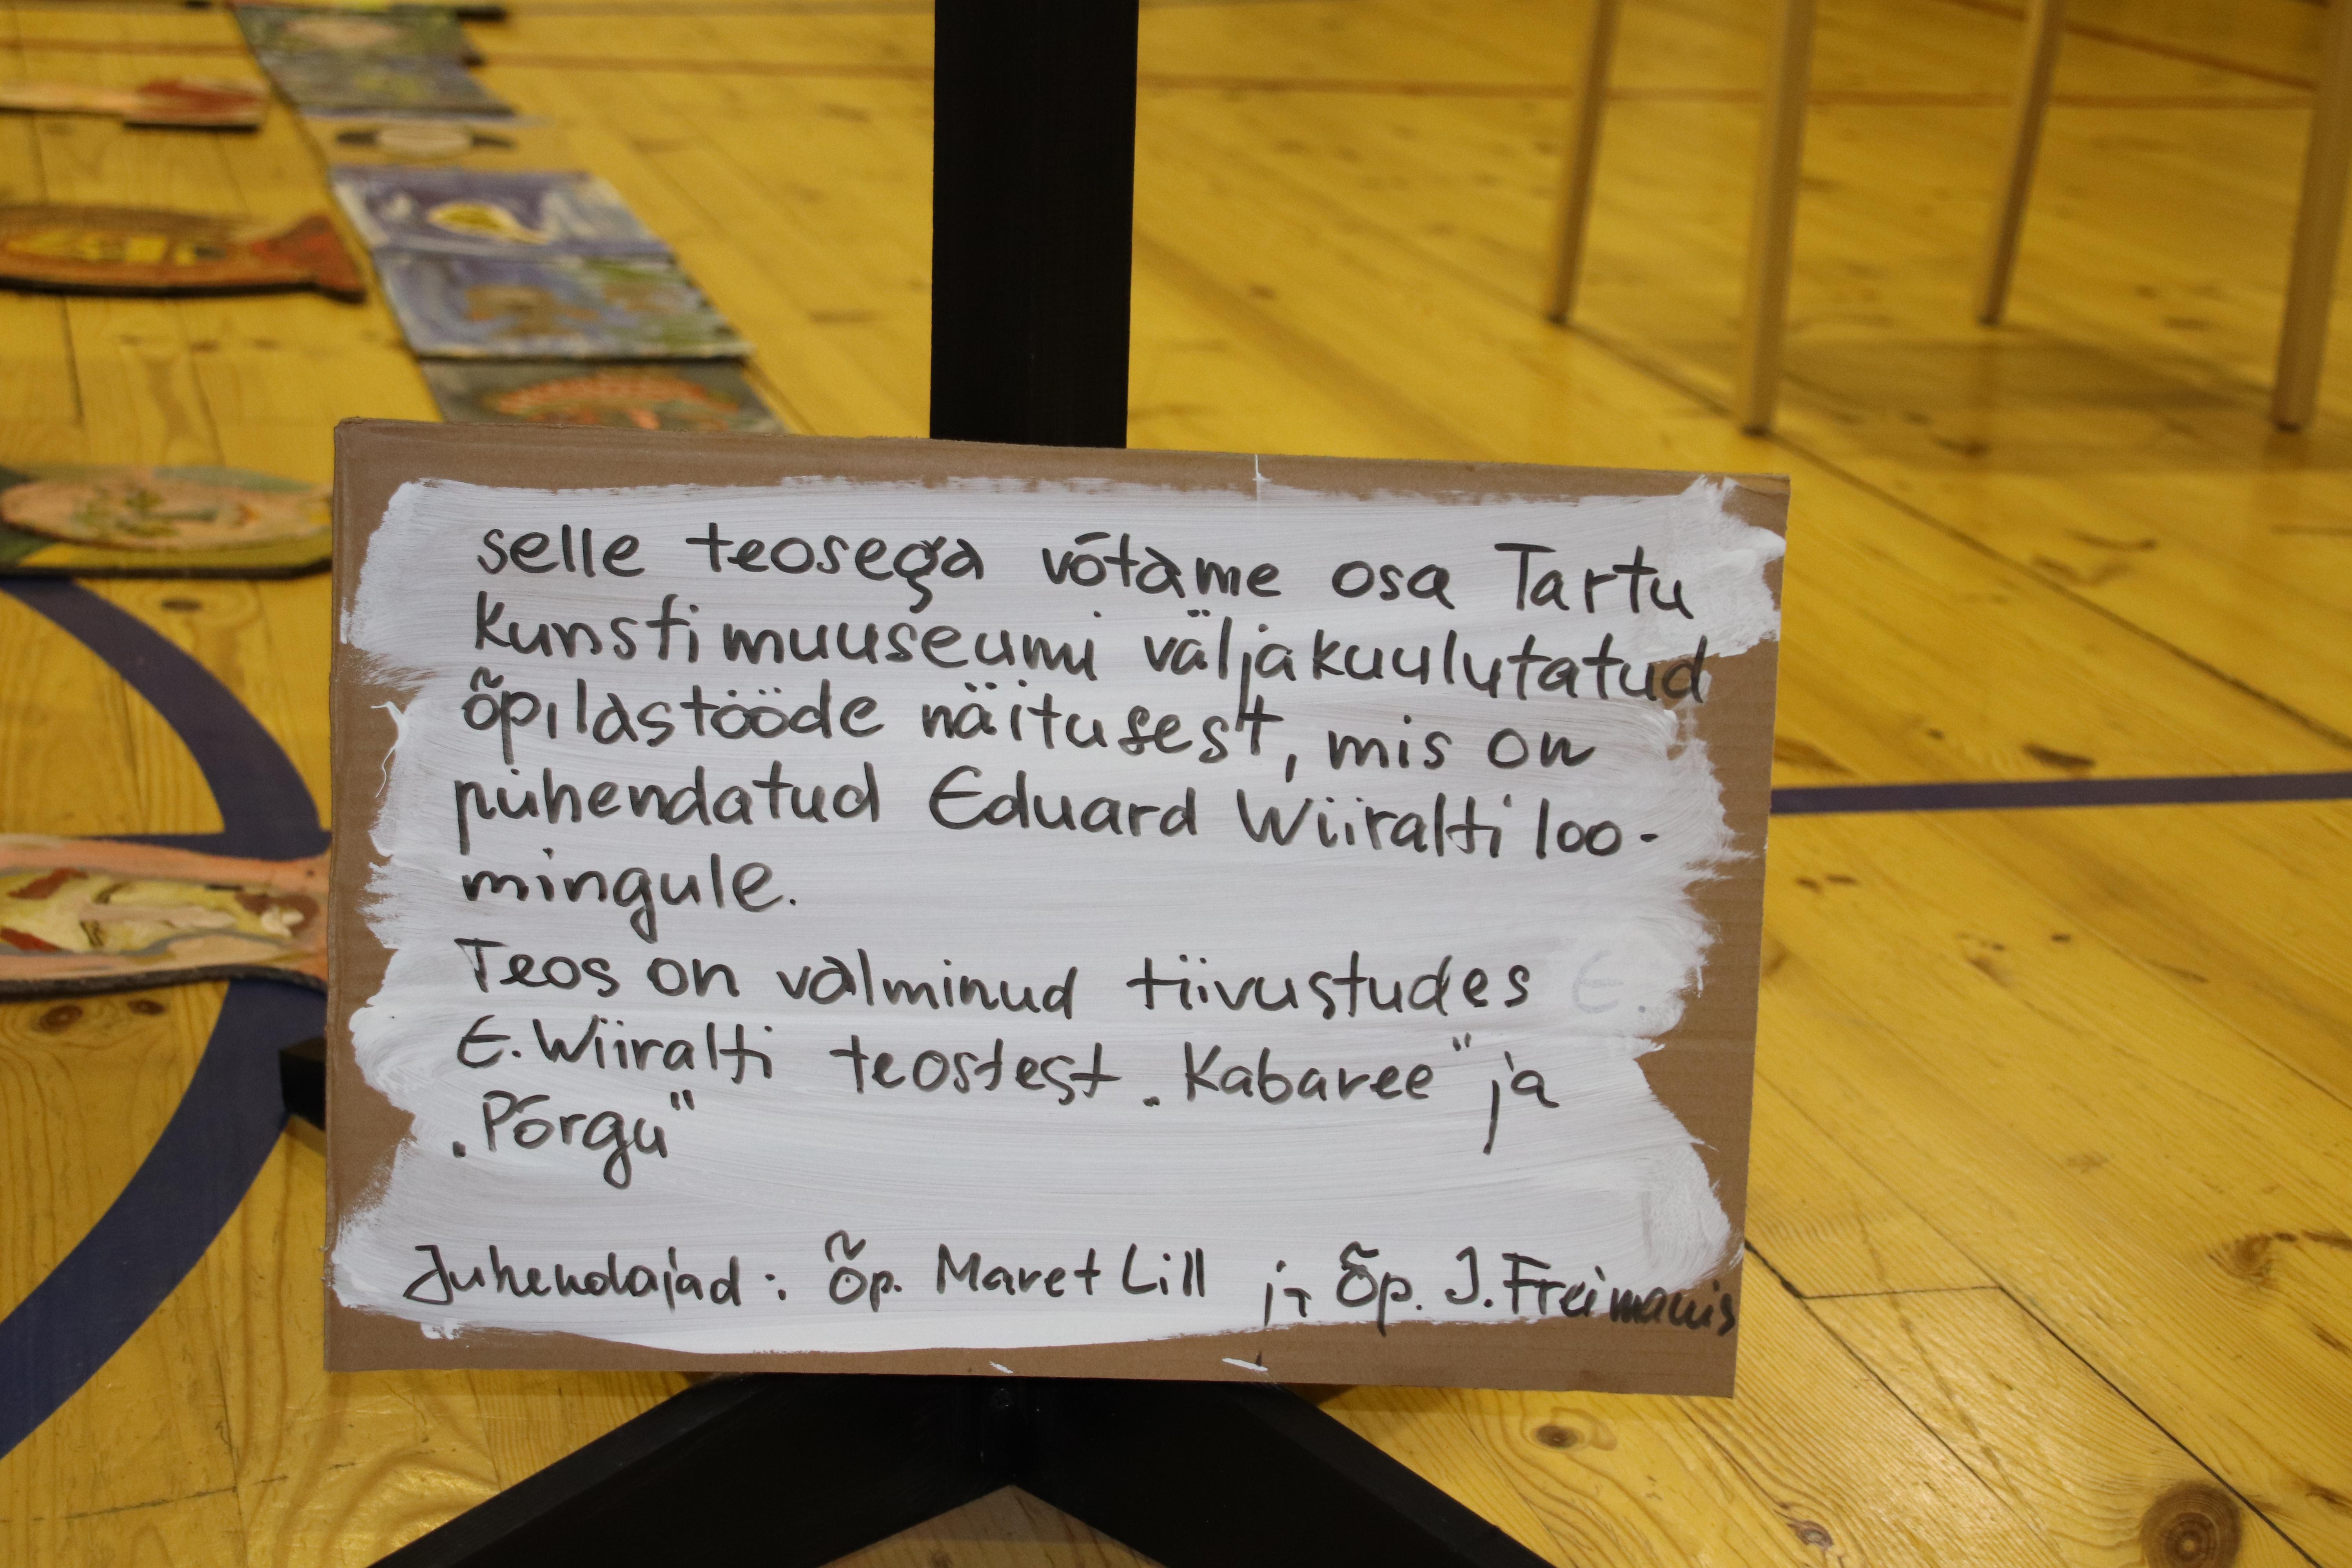 selle teosega võtame osa Tartu
kunstimuuseumi väljakuulutatud
õpilastööde näitusest, mis on
pühendatud Eduard Wiiralti loo-
mingule.
Teos on valminud tiivustudes E.
E. Wiiralti teostest „Kabaree" ja
„Põrgu"
Juhendajad: Õp. Maret Lill ja Õp. J. Freimanis